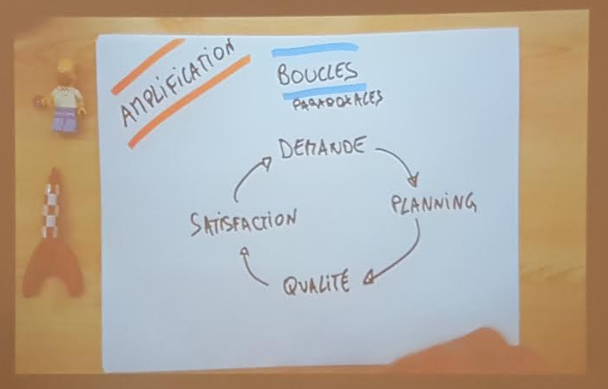 AMPLIFICATION
BOUCLES
PARADOXALES
DEMANDE
PLANNING
QUALITÉ
SATISFACTION